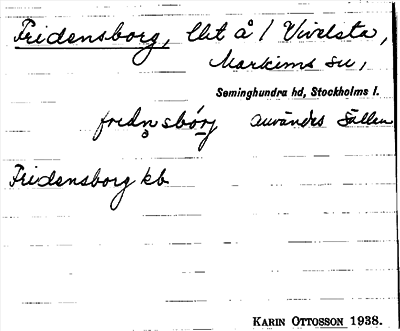 Fridensborg, lht å 1 Vivelsta,
Markims sn,
Seminghundra hd, Stockholms l.
fredn̥sbórg användes sällan
Fridensborg kb
KARIN OTTOSSON 1938.